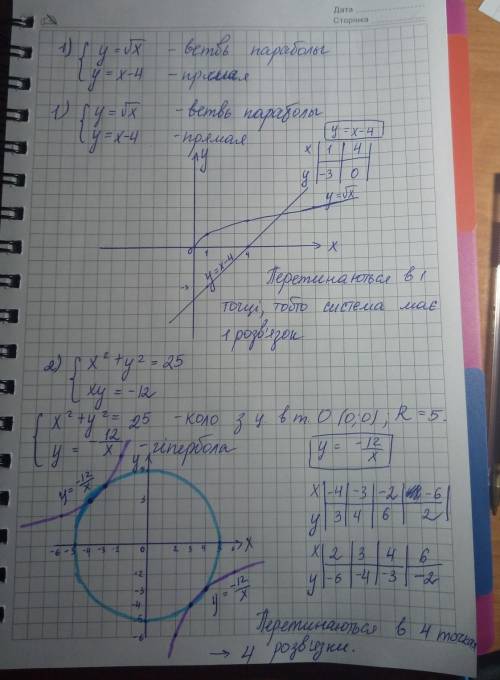 Дата
Сторінка
1) { y = √x - ветвь параболы
y = x-4 - прямая
1) { y = √x - ветвь параболы
y = x-4 - прямая
y = x-4
x | 1 | 4
y | -3 | 0
y
y = √x
0 1 4 x
y = x-4
Перетинаються в 1
точці, тобто система має
1 розв'язок
2) { x² + y² = 25
xy = -12
{ x² + y² = 25 - коло з ц. в т. O (0;0); R = 5.
y = -12/x - гіпербола
y = -12/x
x | -4 | -3 | -2 | -6
y | 3 | 4 | 6 | 2
x | 2 | 3 | 4 | 6
y | -6 | -4 | -3 | -2
y = -12/x
y
-6 -5 -4 -3 -2 2 3 4 5 6 X
-2
-3
-4
-5
-6
y = -12/x
Перетинаються в 4 точках
→ 4 розв'язки.